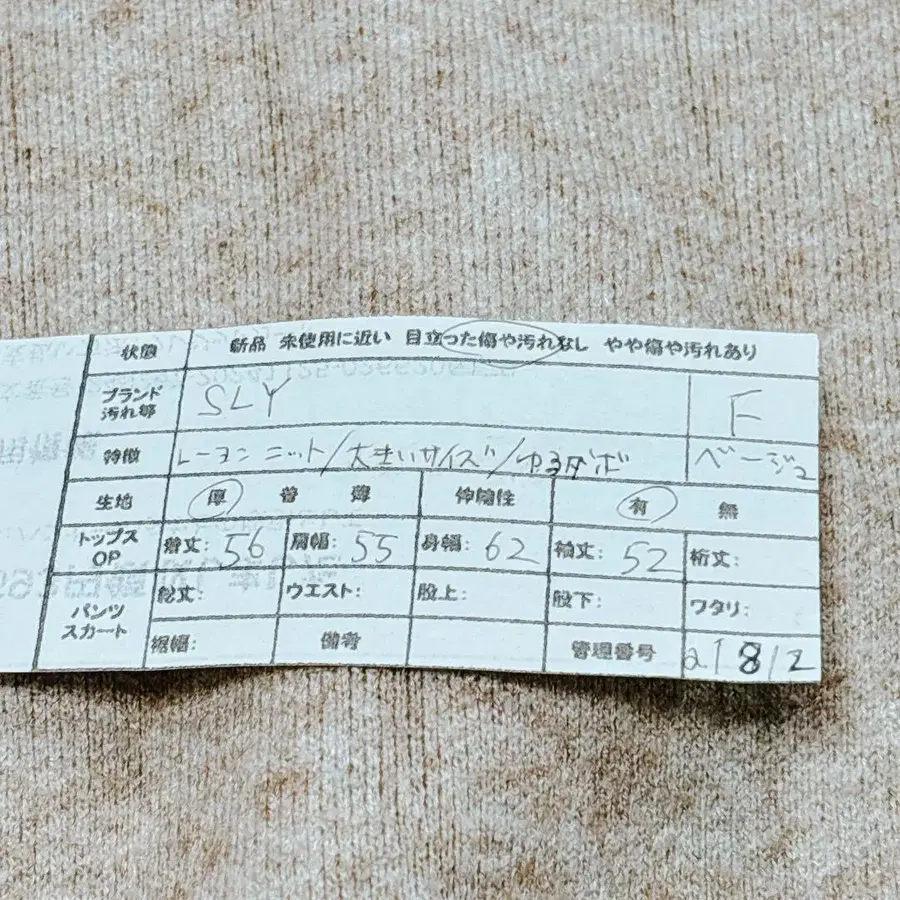 状態 新品 未使用に近い 目立った傷や汚れなし やや傷や汚れあり
ブランド 汚れ等 SLY F
特徴 レーヨンニット/大きいサイズ/ゆるダボ ベージュ
生地 厚 普 薄 伸縮性 有 無
トップス OP 着丈: 56 肩幅: 55 身幅: 62 袖丈: 52 裄丈:
パンツ スカート 総丈: ウエスト: 股上: 股下: ワタリ:
裾幅: 備考 管理番号 a1812